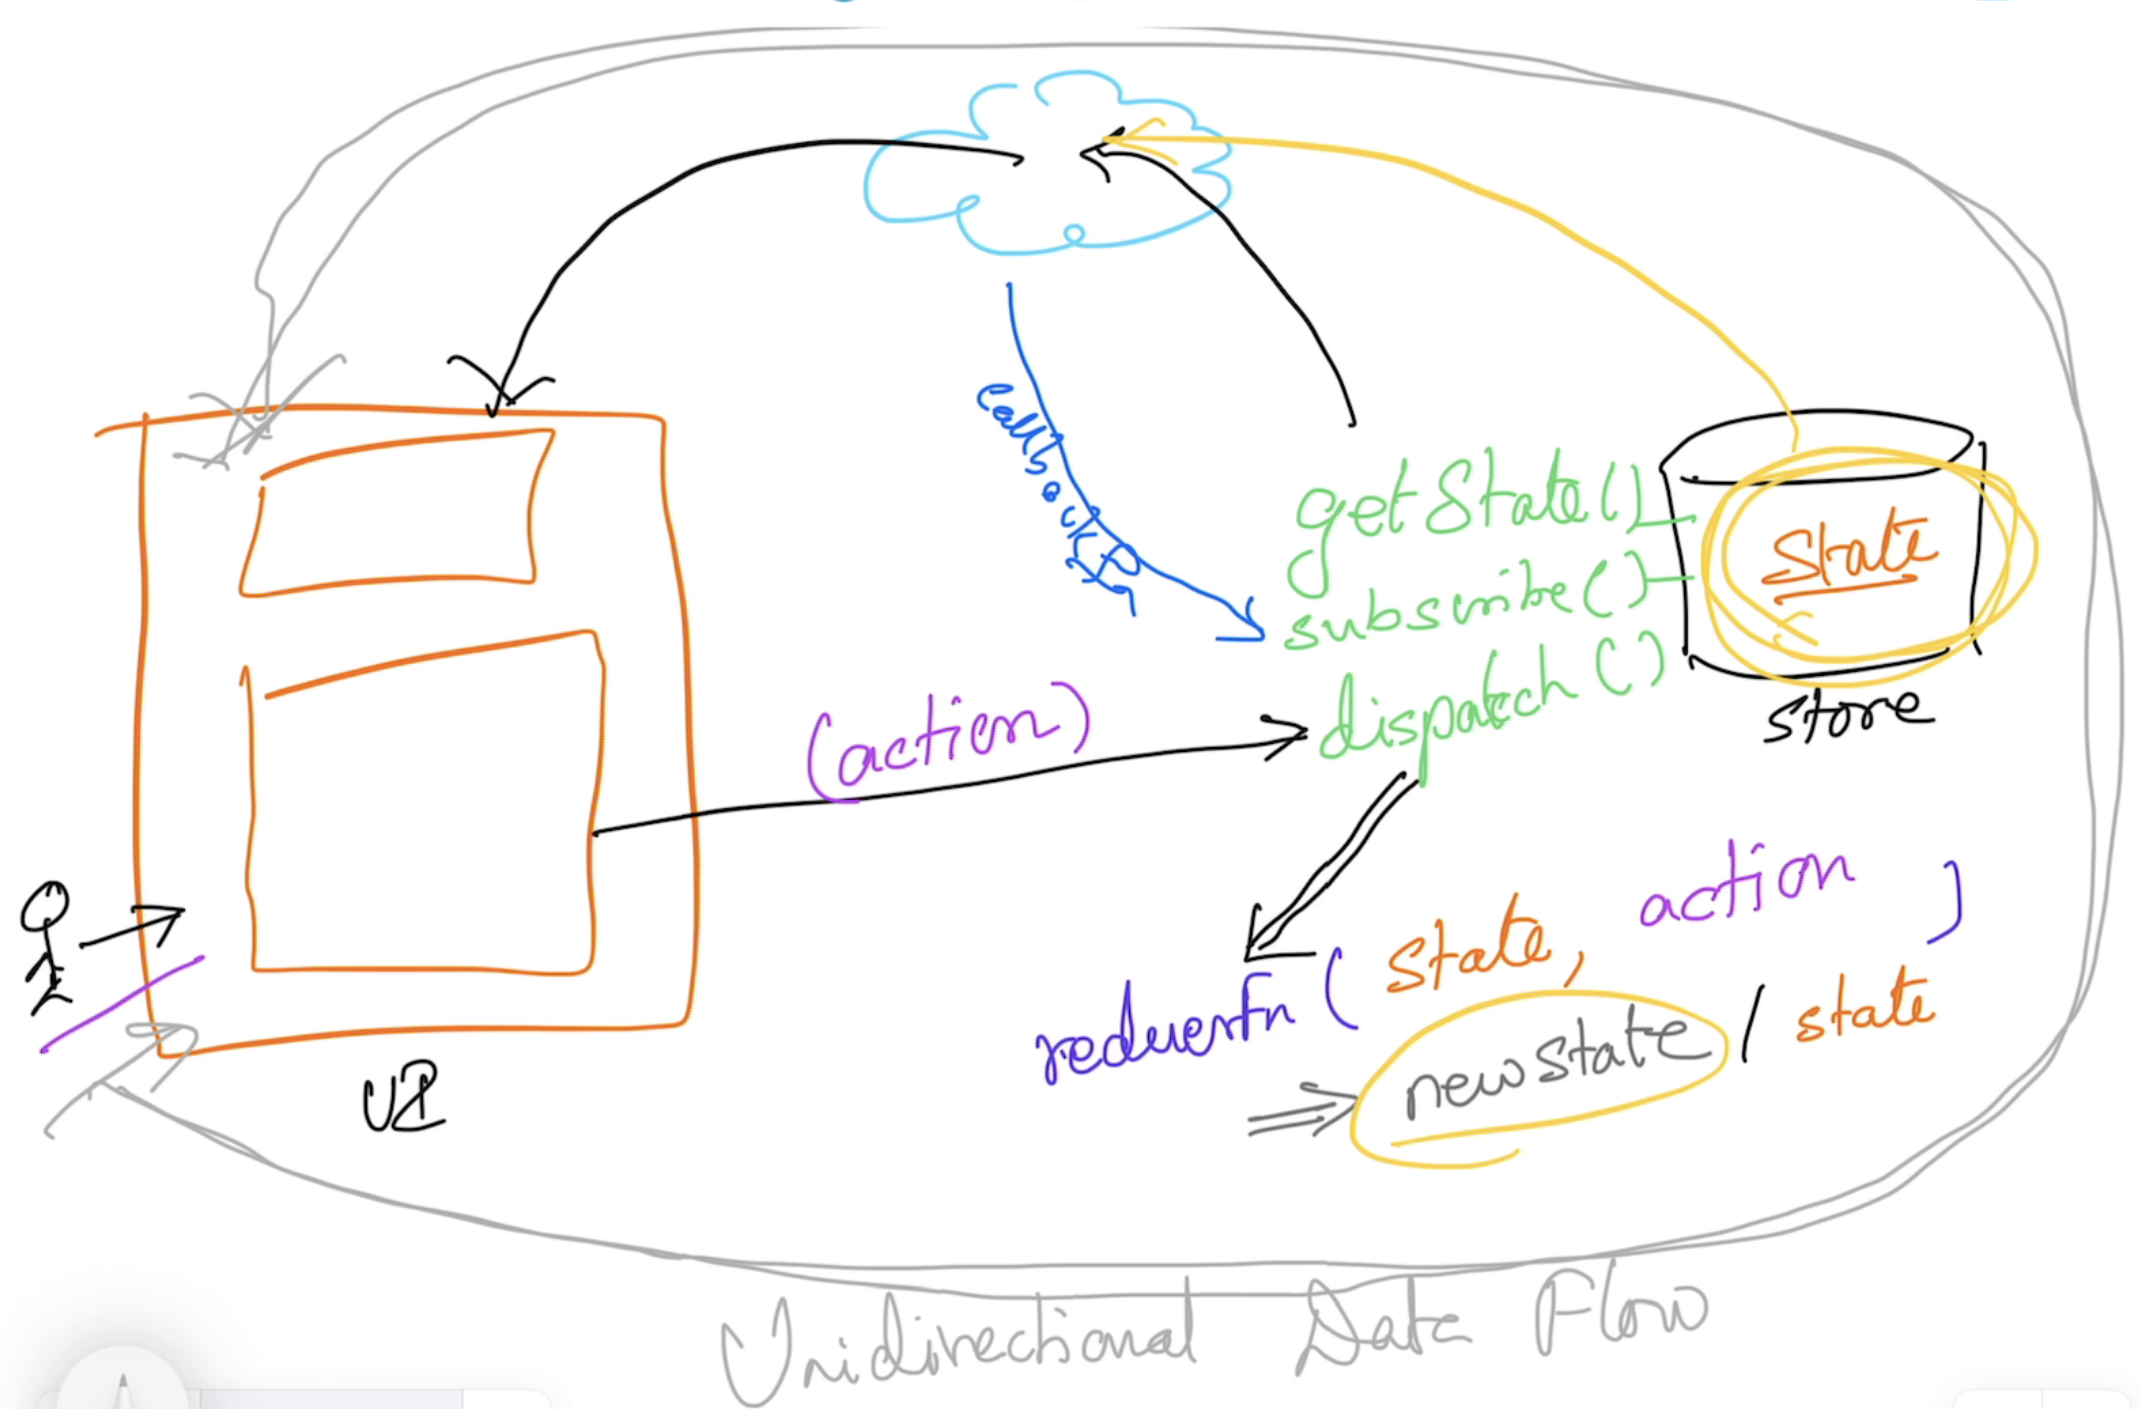 callback
getState()
subscribe()
State
dispatch()
store
(action)
reducerFn ( state, action )
newstate / state
UI
Unidirectional Data Flow